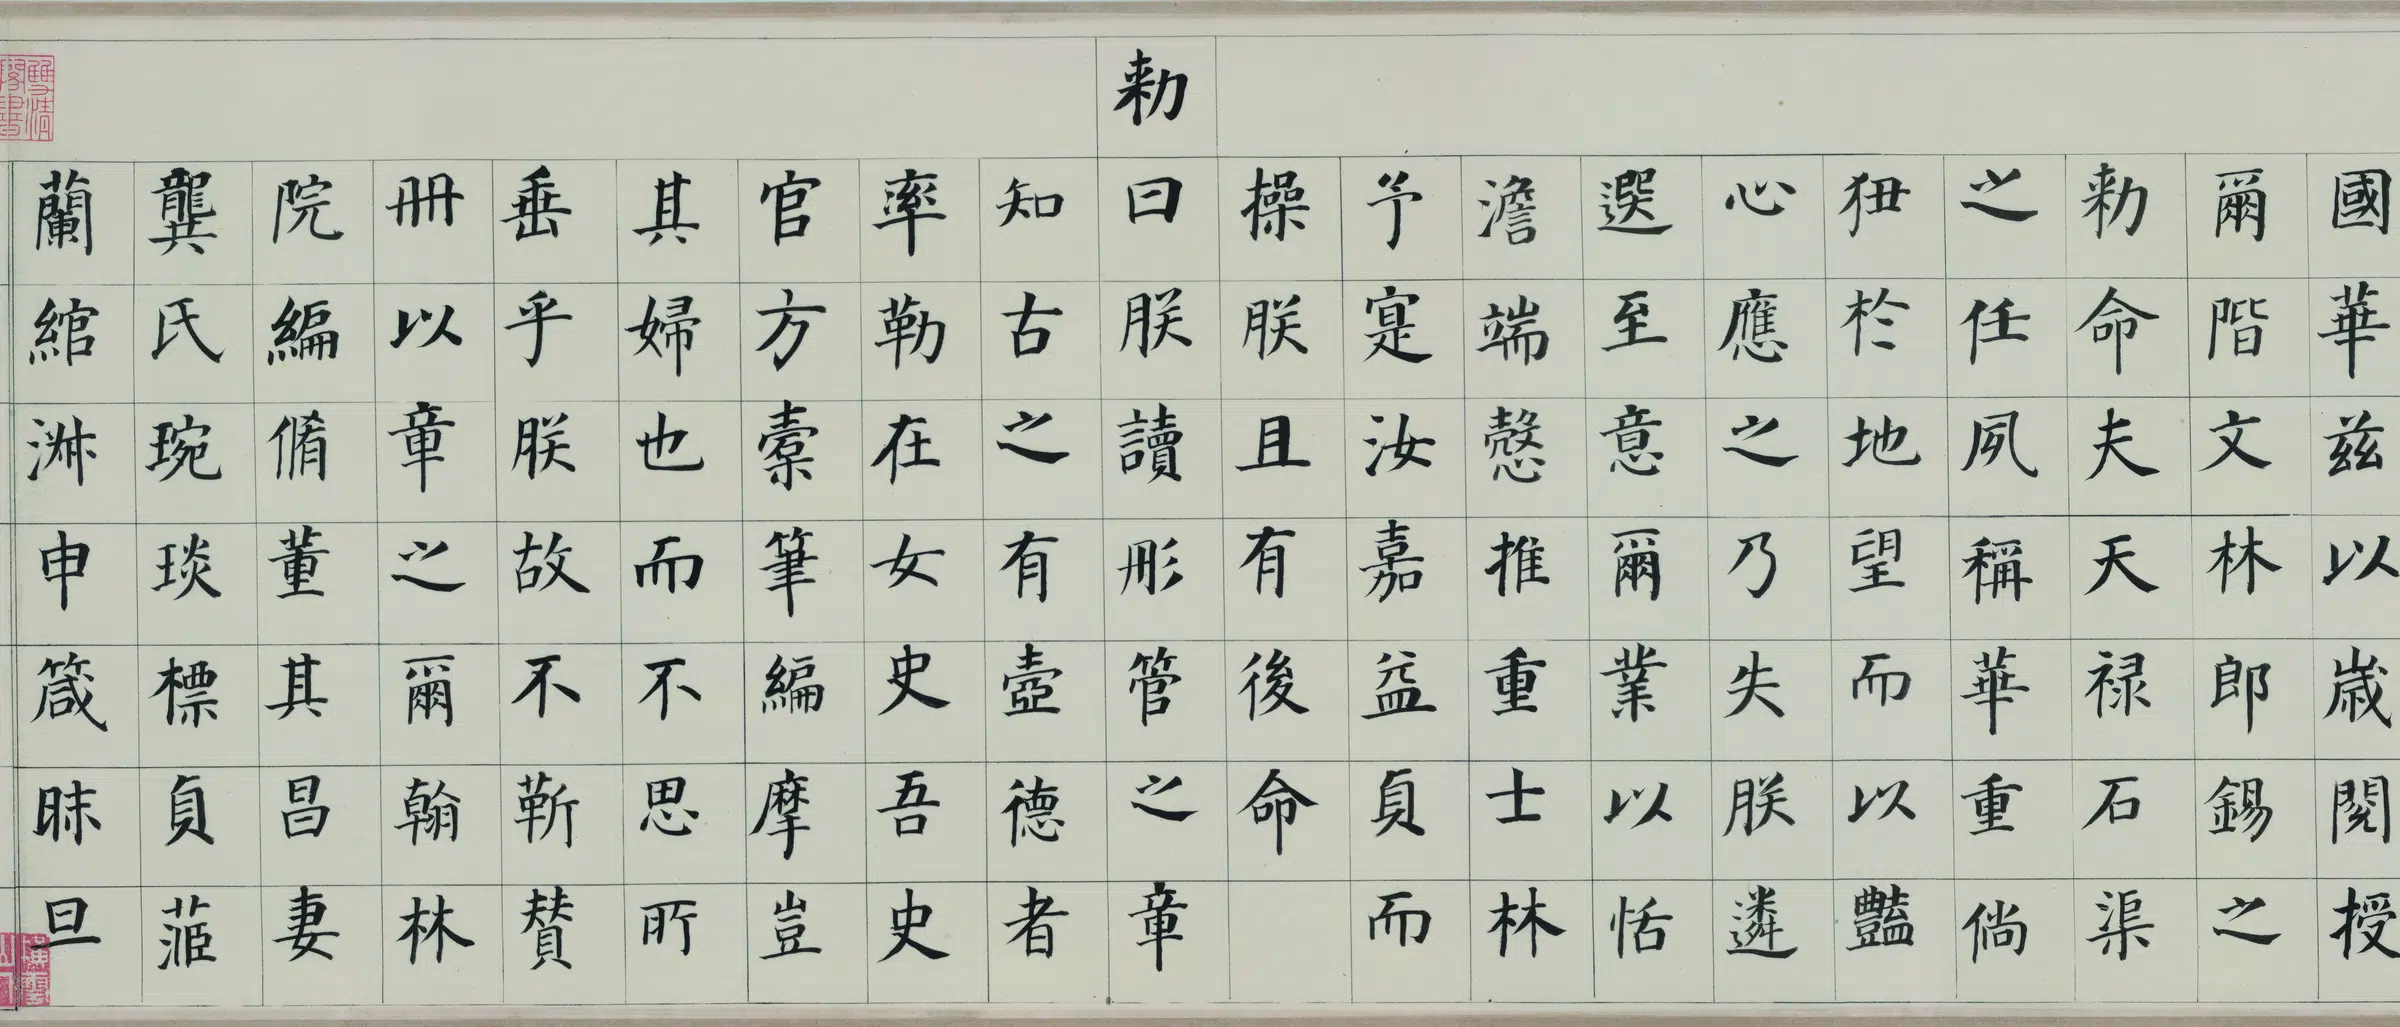 國華茲以歲閱授
爾階文林郎錫之
勅命夫天祿石渠
之任夙稱華重倘
㹨於地望而以豔
心應之乃失朕遴
選至意爾業以恬
澹端愨推重士林
予寔汝嘉益貞而
操朕且有後命
勅
曰朕讀彤管之章
知古之有壺德者
率勒在女史吾史
官方橐筆編摩豈
其婦也而不思所
垂乎朕故不靳贊
冊以章之爾翰林
院編脩董其昌妻
龔氏琬琰標貞蒞
蘭綰淋申箴昧旦